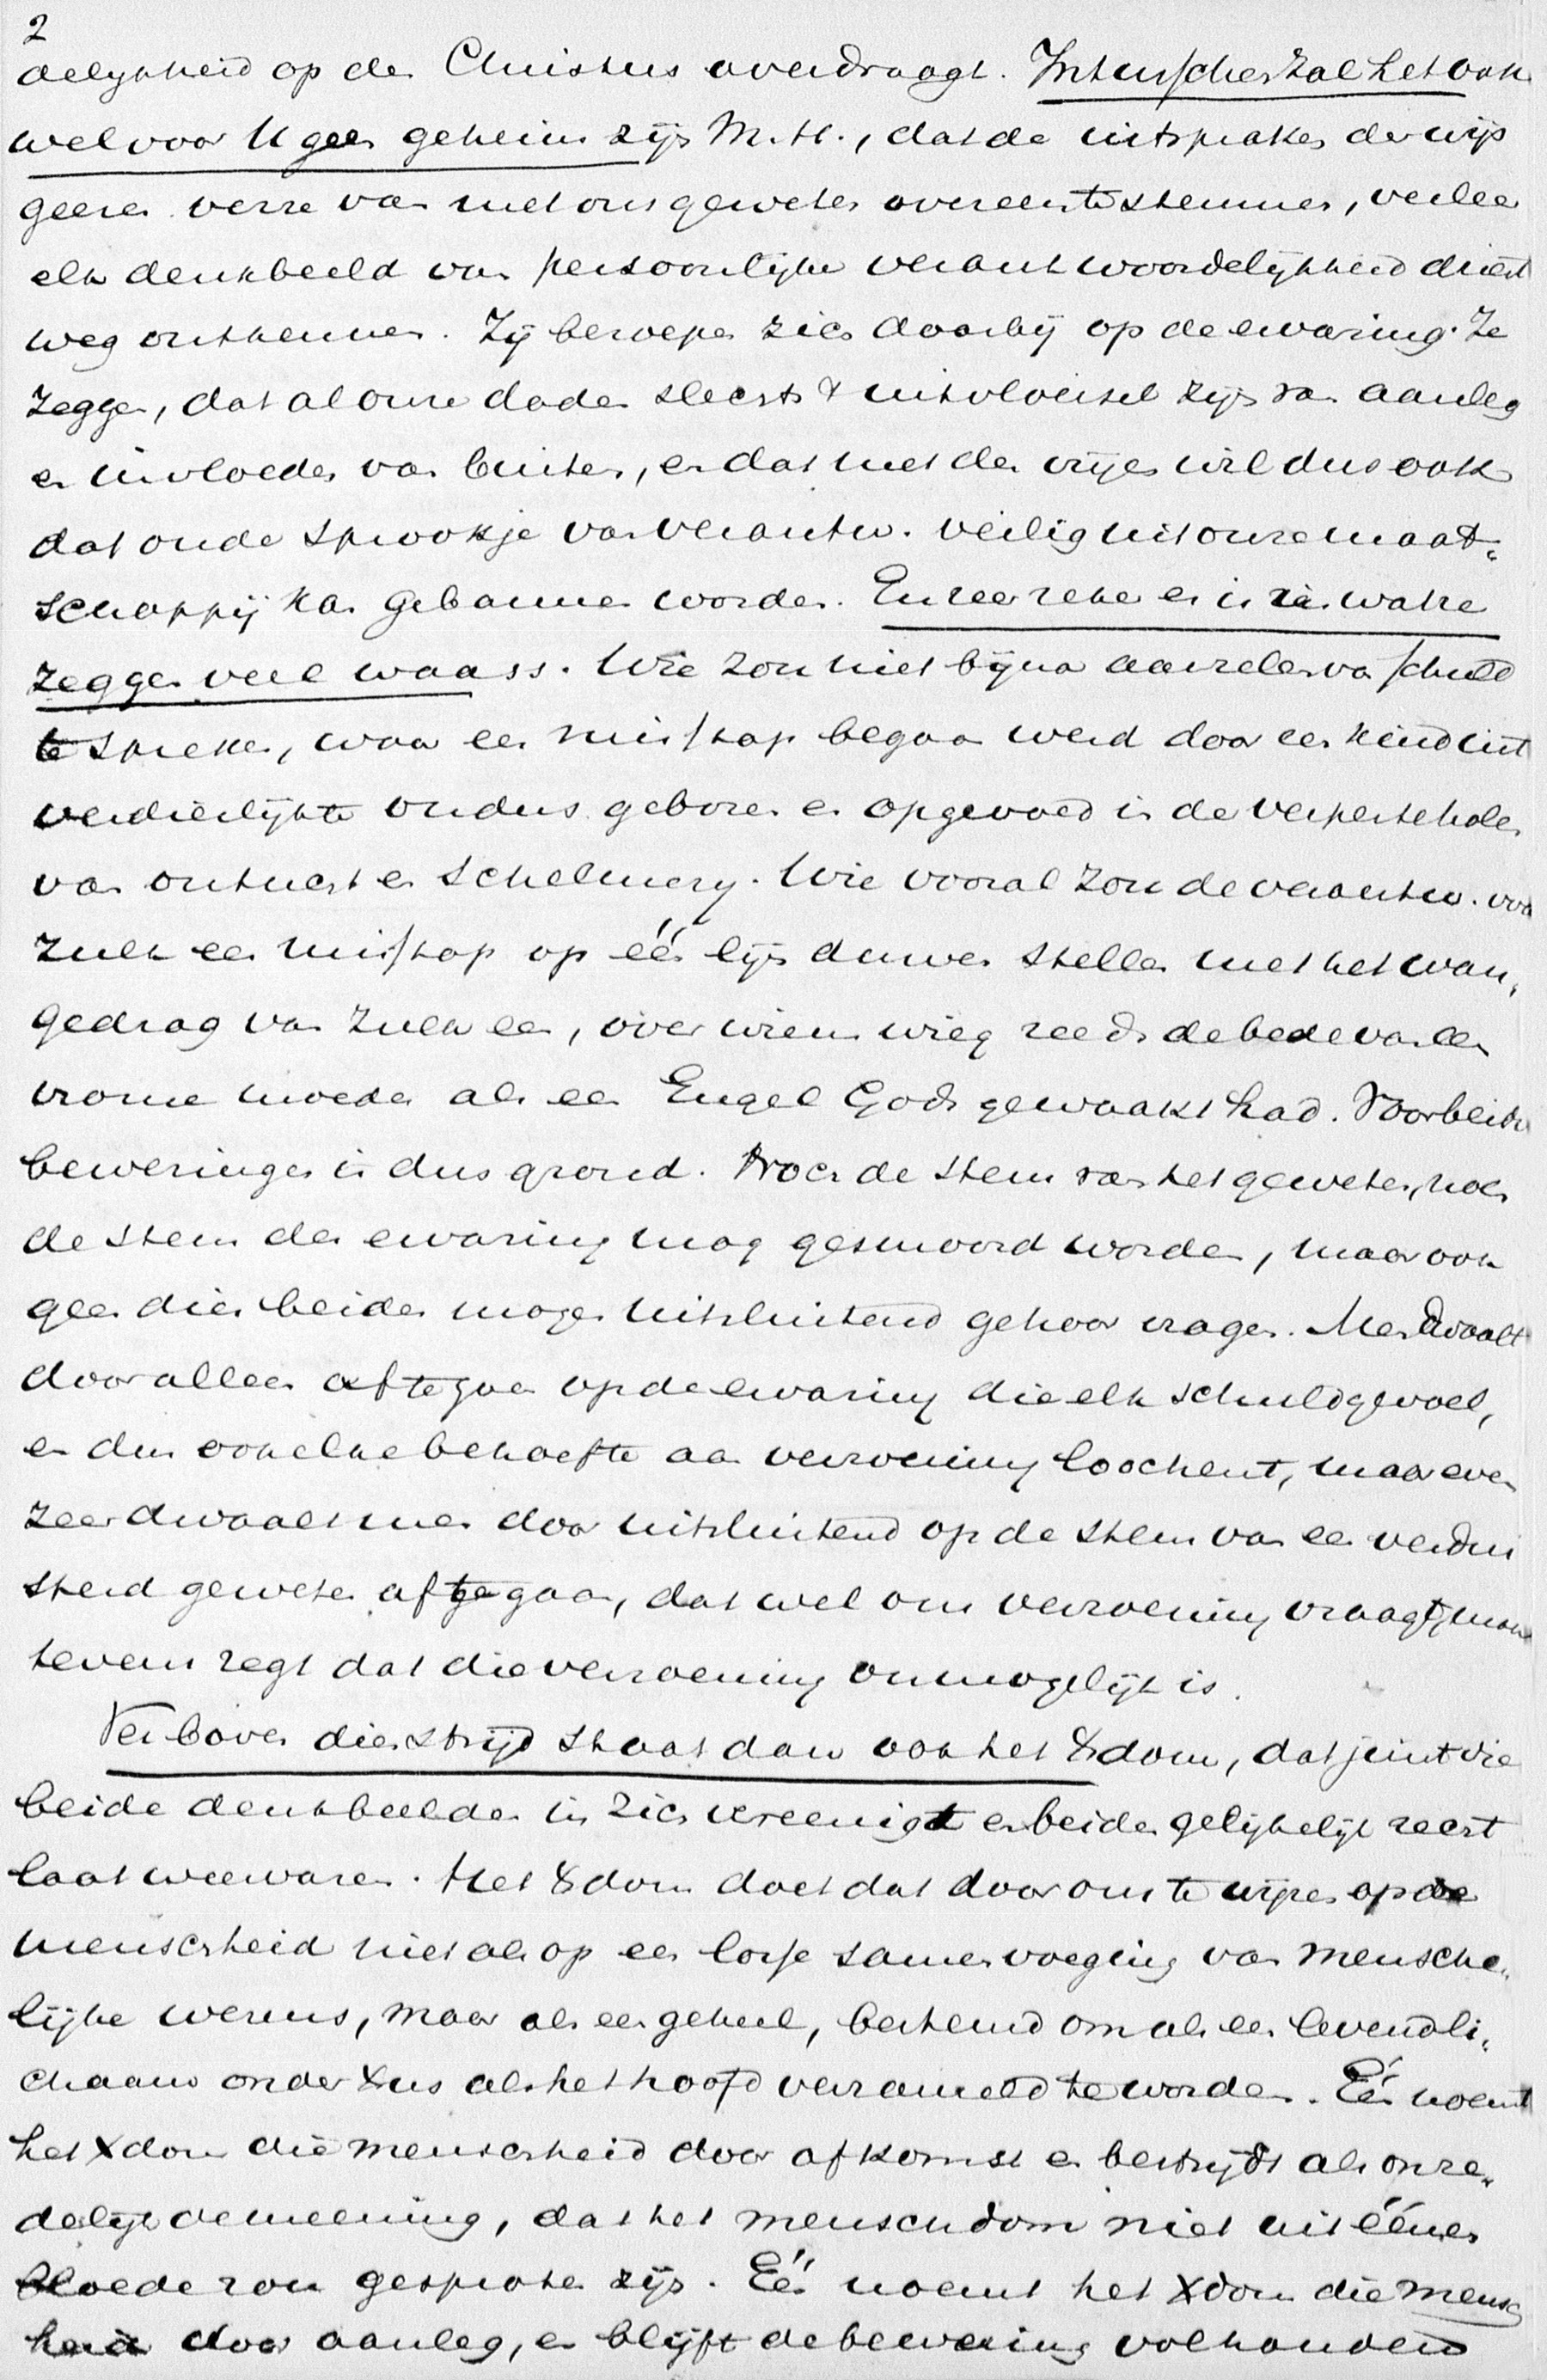 2
delijkheid op den Christus overdraagt. Intusschen zal het ook
wel voor U geen geheim zijn M. H., dat de uitspraken der wijs
geeren verre van met ons geweten overeen te stemmen, veeleer
elk denkbeeld van persoonlijke verantwoordelijkheid driest
weg ontkennen. Zij beroepen zich daarbij op de ervaring. Ze
zeggen, dat al onze daden slechts 't uitvloeisel zijn van aanleg
en invloeden van buiten, en dat met den vrijen wil dus ook
dat oude sprookje van verantw. veilig uit onze maat-
schappij kan gebannen worden. En zeer zeker er is in 't walre
zeggen veel waars. Wie zou niet bijna aarzelen van schuld
te spreken, waar een misstap begaan werd door een kind uit
verdierlijkte ouders geboren en opgevoed in de verpesteholen
van ontucht en schelmerij. Wie vooral zou de verantw. van
zulk een misstap op één lijn durven stellen met het wan-
gedrag van zulk een, over wiens wieg reeds de bede van een
vrome moeder als een Engel Gods gewaakt had. Voor beide
beweringen is dus grond. Noch de stem van het geweten, noch
de stem der ervaring mag gesmoord worden, maar ook
geen dier beiden mogen uitsluitend gehoor vragen. Men dwaalt
door alleen af te gaan op de ervaring die elk schuldgevoel,
en dus ook elke behoefte aan verzoening loochent, maar even
zeer dwaalt men door uitsluitend op de stem van een verdui
sterd geweten af te gaan, dat wel om verzoening vraagt, maar
tevens zegt dat die verzoening onmogelijk is.
Ver boven dien strijd staat dan ook het Xdom, dat juist die
beide denkbeelden in zich vereenigt en beiden gelijkelijk recht
laat weervaren. Het Xdom doet dat door ons te wijzen op de
menschheid niet als op een losse samenvoeging van mensche-
lijke wezens, maar als een geheel, bestemd om als een levend li-
chaam onder Xus als het hoofd verzameld te worden. Eén noemt
het Xdom die menschheid door afkomst en bestrijdt als onre-
delijk de meening, dat het menschdom niet uit éénen
bloede zou gesproten zijn. Eén noemt het Xdom die mensch
heid door aanleg, en blijft de bewering volhouden